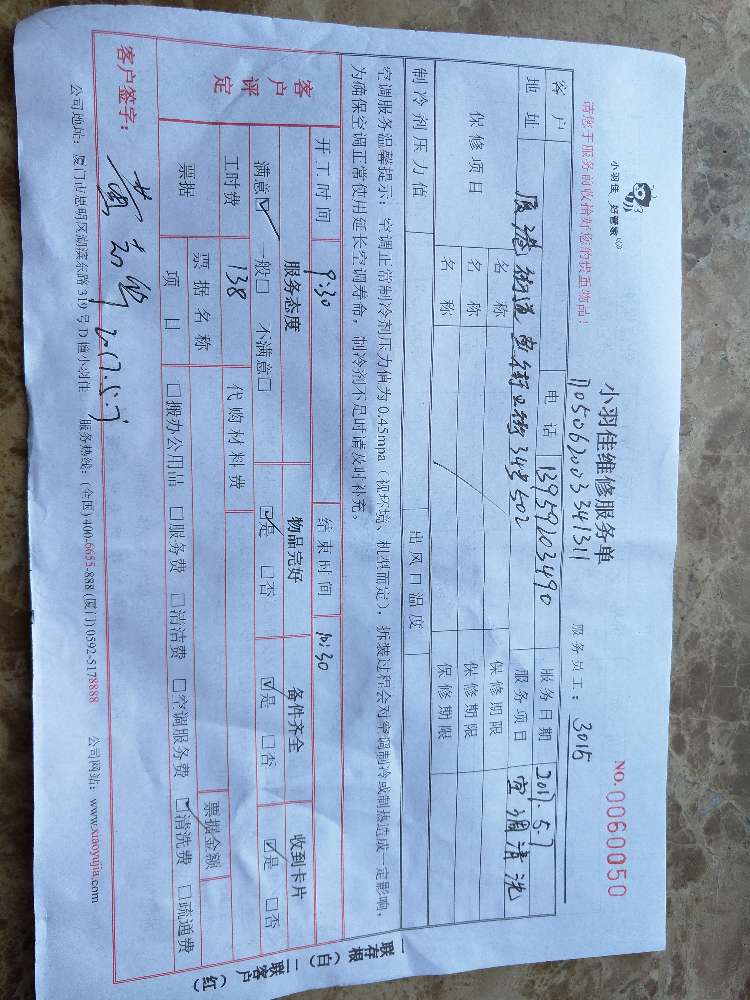 小羽佳 好管家
请您于服务前收拾好您的贵重物品！
小羽佳维修服务单
NO.0060050
服务员工：3015
客户 电话 13959203490 服务日期 2017.5.7
地址 街34号502 服务项目 空调清洗
保修项目 名称 保修期限
名称 保修期限
名称 保修期限
制冷剂压力值 出风口温度
空调服务温馨提示：空调正常制冷剂压力值为0.45mpa（视环境、机型而定），拆装过程会对空调制冷或制热造成一定影响，
为确保空调正常使用延长空调寿命，制冷剂不足时请及时补充。
开工时间 9:30 结束时间 10:30
客户评定
服务态度 物品完好 备件齐全 收到卡片
满意☑ 一般□ 不满意□ ☑是 □否 ☑是 □否 ☑是 □否
工时费 138 代购材料费
票据 票据名称 票据金额
项目 □搬办公用品 □服务费 □清洁费 □空调服务费 ☑清洗费 □疏通费
客户签字： 2017.5.7
公司地址：厦门市思明区湖滨东路319号D幢小羽佳 服务热线：(全国)400-6655-888 (厦门)0592-5178888 公司网站：www.xiaoyujia.com
一联存根（白）二联客户（红）